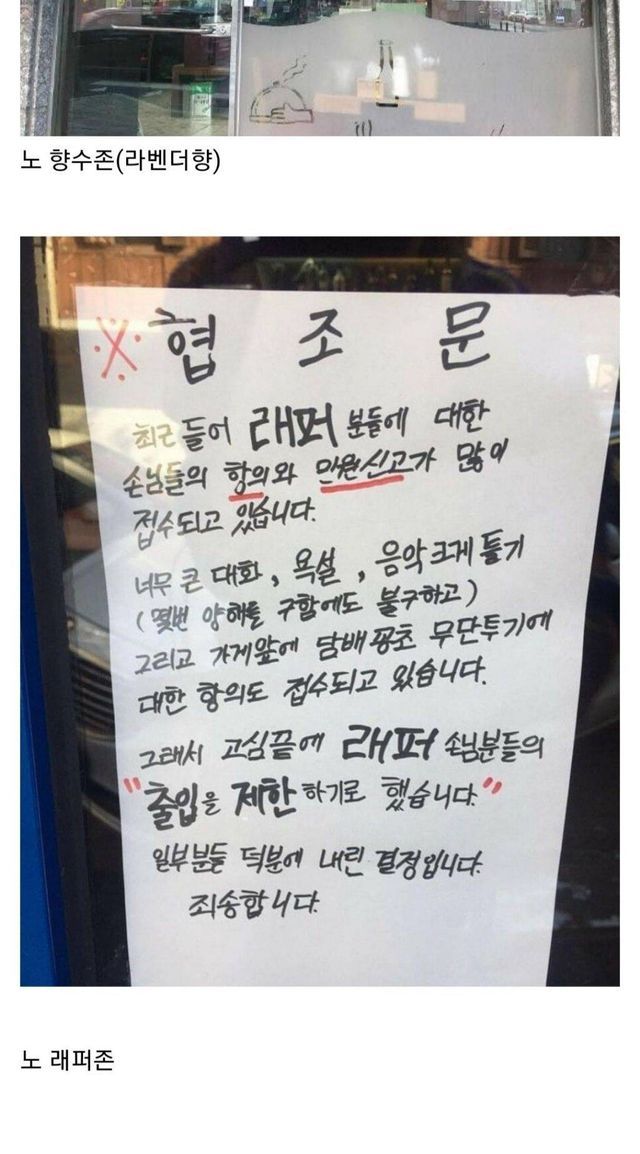 노 향수존(라벤더향)
※ 협조문
최근 들어 래퍼 분들에 대한
손님들의 항의와 민원신고가 많이
접수되고 있습니다.
너무 큰 대화, 욕설, 음악크게 틀기
(몇번 양해를 구함에도 불구하고)
그리고 가게앞에 담배꽁초 무단투기에
대한 항의도 접수되고 있습니다.
그래서 고심끝에 래퍼 손님분들의
"출입을 제한하기로 했습니다."
일부분들 덕분에 내린 결정입니다.
죄송합니다.
노 래퍼존